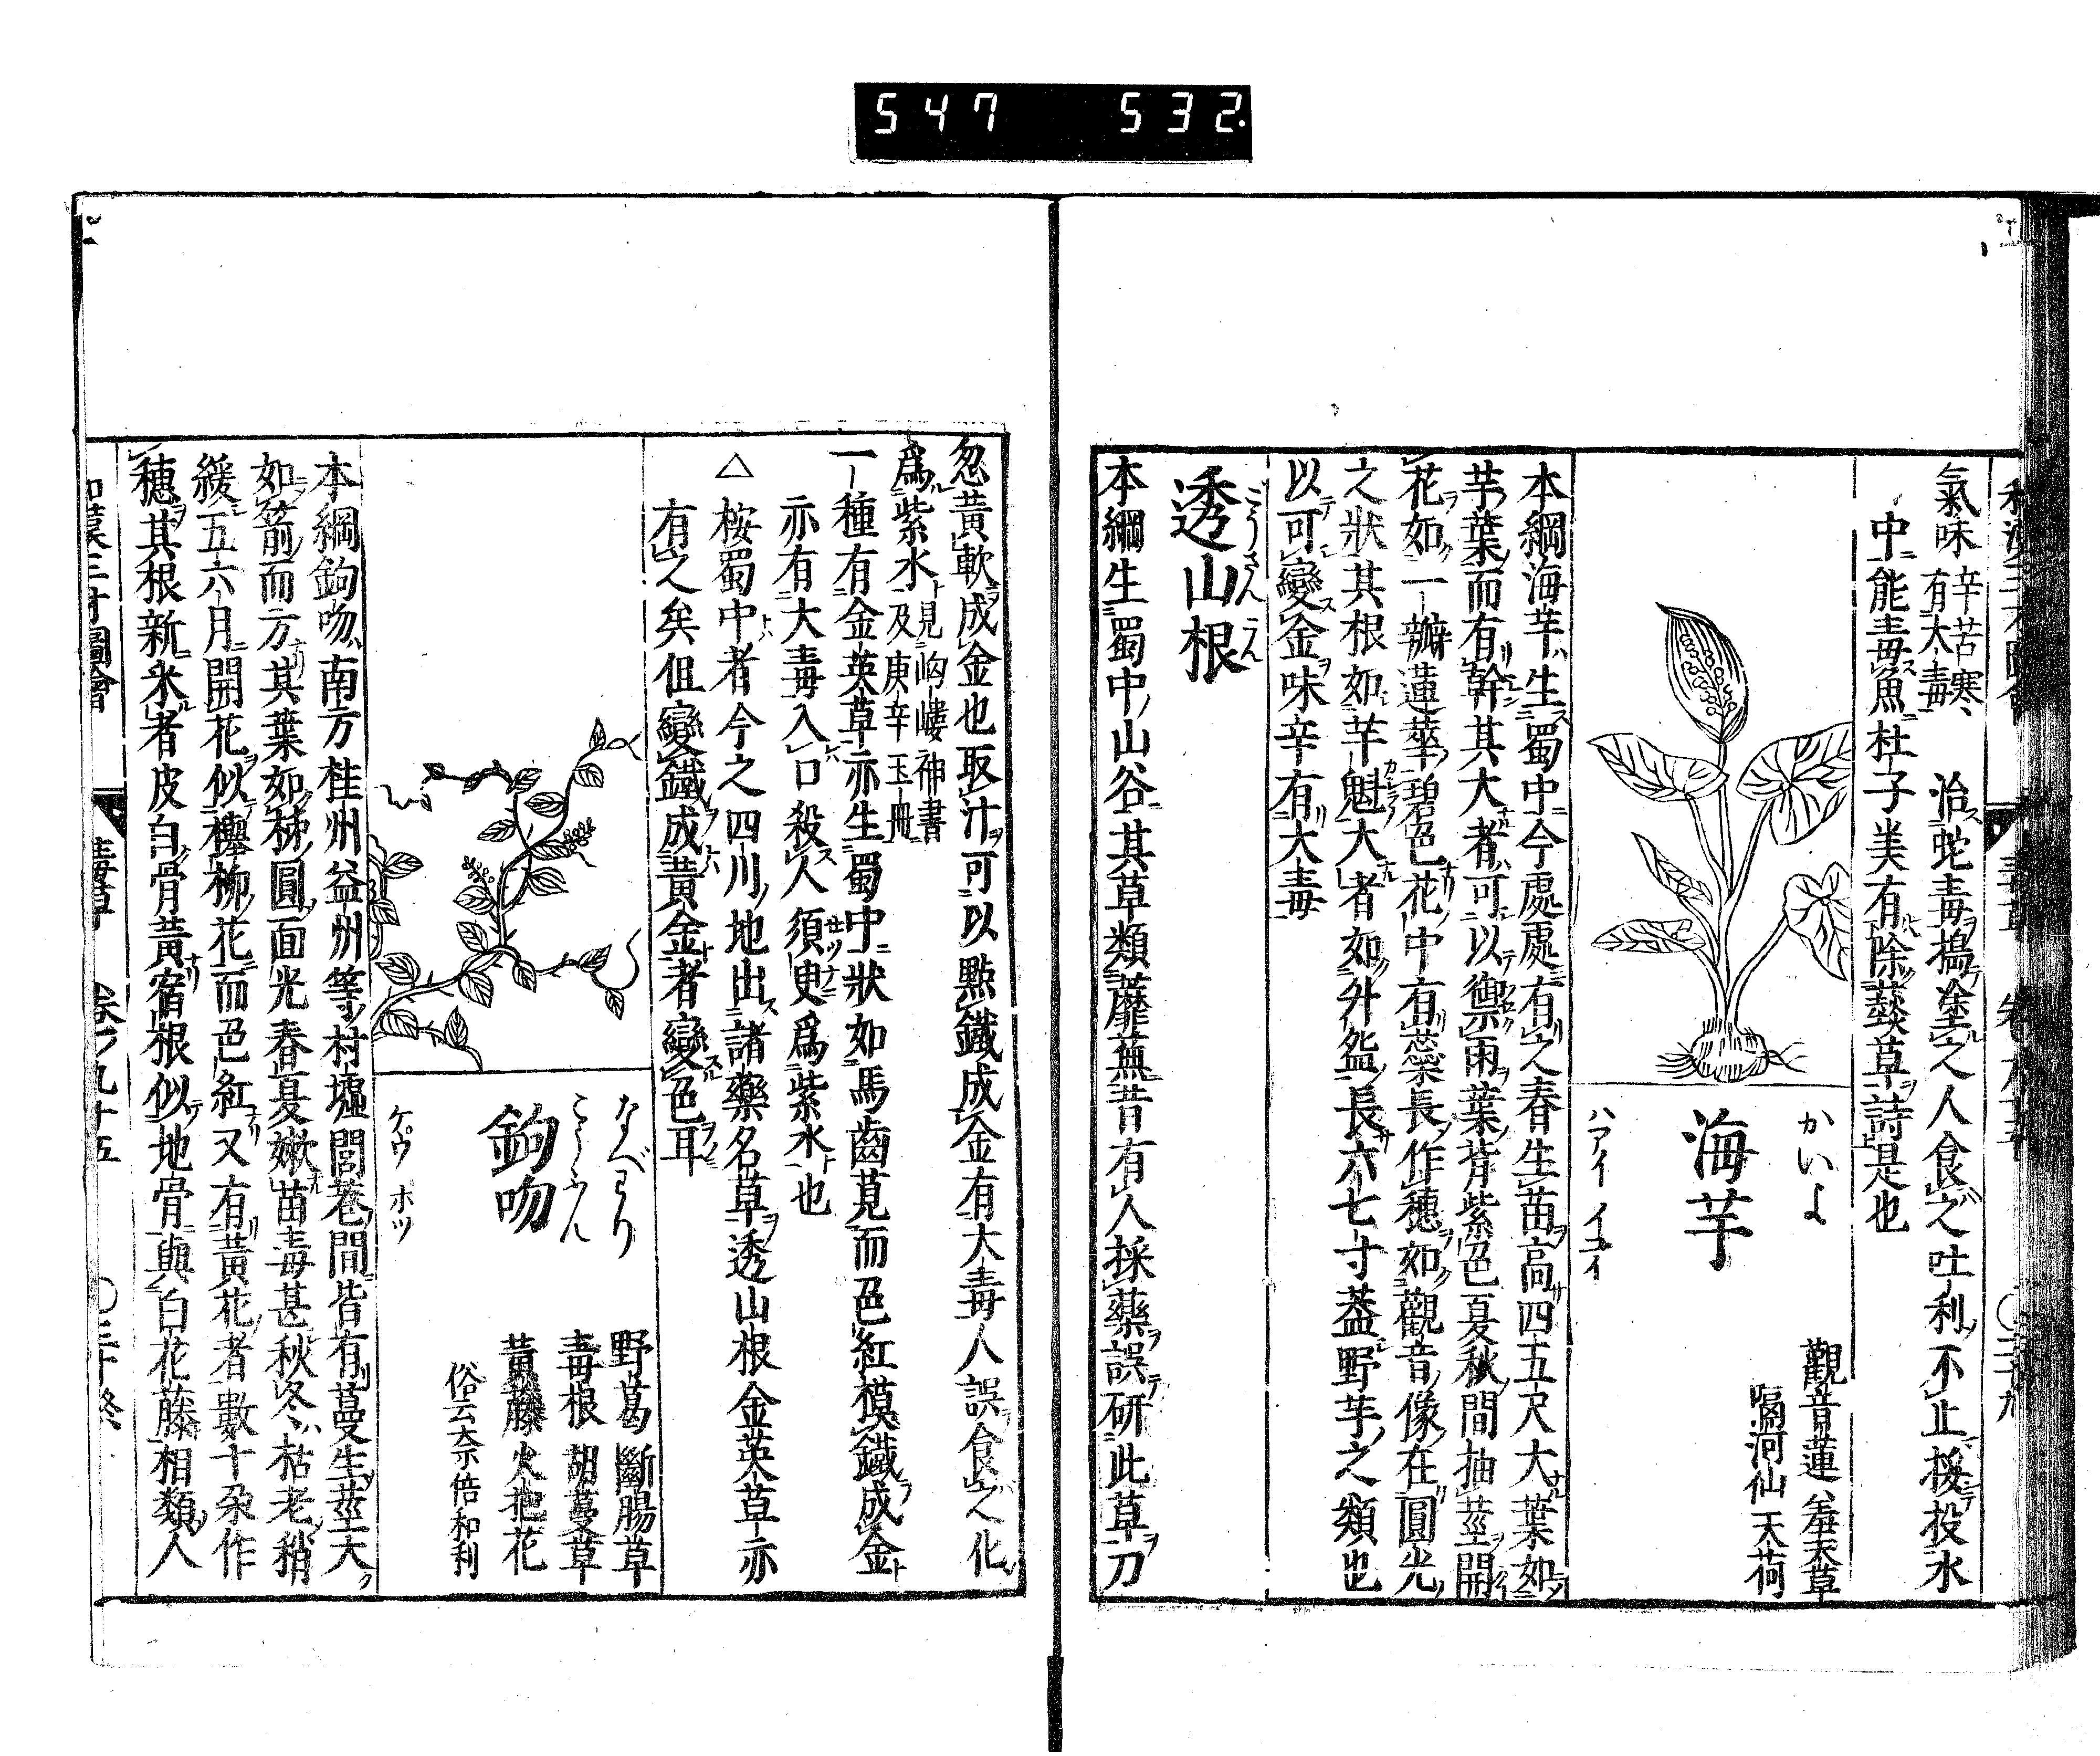 547 532
氣味 辛苦寒
有大毒
治蛇毒搗塗之人食之吐利不止投水
中能毒魚杜子美有除蕟草詩是也
かいよ
海芋
ハアイ イユイ
觀音蓮 羞天草
隔河仙 天荷
本綱海芋生蜀中今處處有之春生苗高四五尺大葉如
芋葉而有幹其大者可以禦雨葉背紫色夏秋間抽莖開
花如一瓣蓮華碧色花中有蕊長作穗如觀音像在圓光
之狀其根如芋魁大者如升盌長六七寸葢野芋之類也
以可變金味辛有大毒
透山根
ごうさんこん
本綱生蜀中山谷其草類蘼蕪昔有人採藥誤研此草刀
忽黃軟成金也取汁可以點鐵成金有大毒人誤食之化
爲紫水 見岣嶁神書
及庚辛玉冊
一種有金英草亦生蜀中狀如馬齒莧而色紅模鐵成金
亦有大毒入口殺人須臾爲紫水也
△桉蜀中者今之四川地出諸藥名草透山根金英草亦
有之矣但變鐵成黃金者變色耳
なべわり
こうふん
鉤吻
ケウ ホツ
野葛 斷腸草
毒根 胡蔓草
黃藤 火把花
俗云奈倍和利
本綱鉤吻南方桂州益州等村墟閭巷間皆有蔓生莖大
如箭而方其葉如柹圓而光春夏嫩苗毒甚秋冬枯老稍
緩五六月開花似櫸柳花而色紅又有黃花者數十朶作
穗其根新采者皮白骨黃宿根似地骨與白花藤相類人
毒草 卷九十五